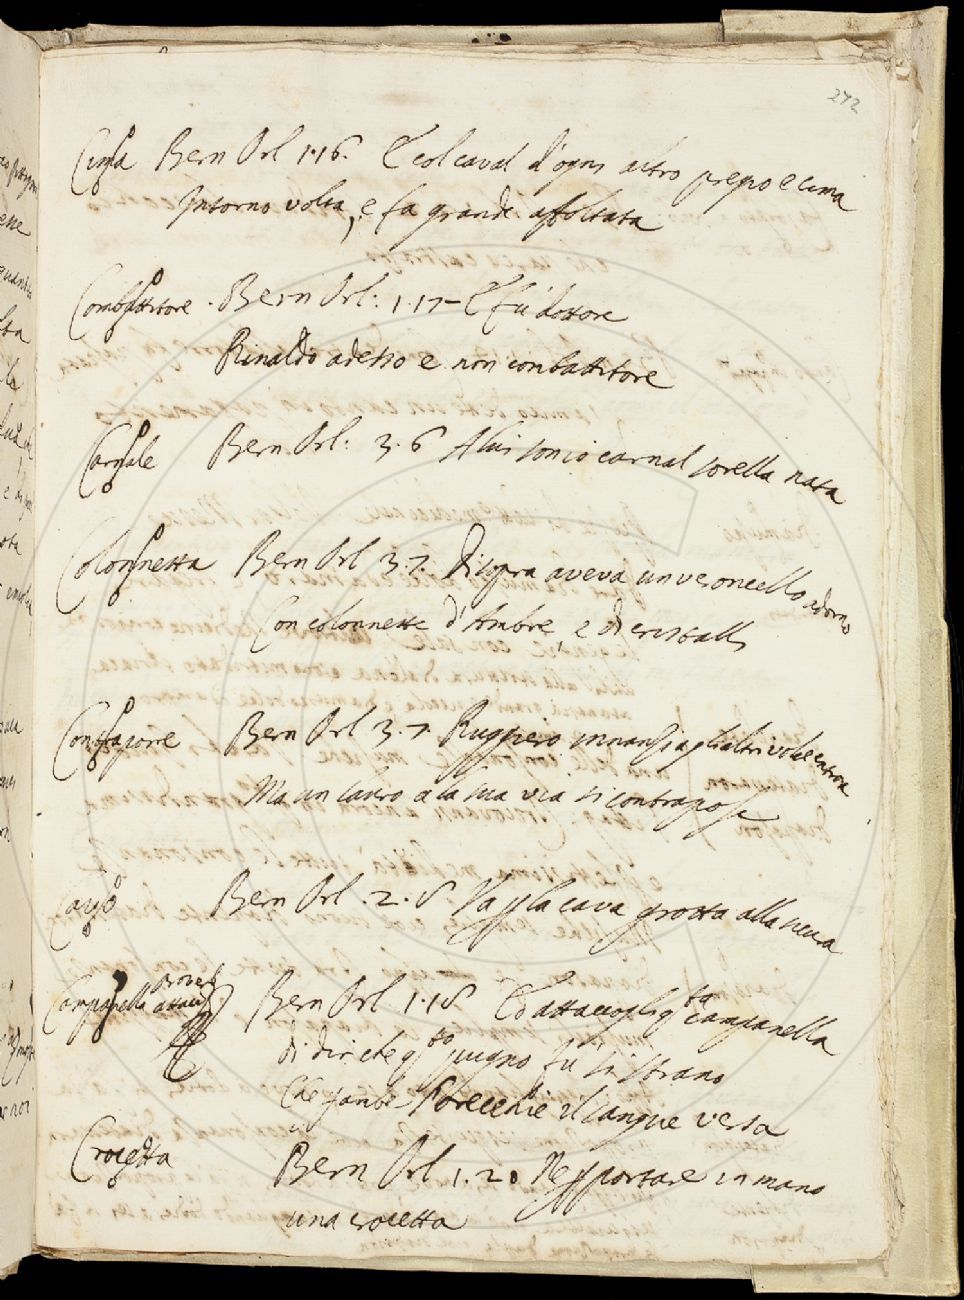 272
Cinta Bern Orl 1.16. E col caval d'ogni altro pregio e cima
Intorno volta, e fa grande affoltata
Combattitore. Bern Orl: 1.17 - E fu dottore
Rinaldo adesso e non combattitore
Carnale Bern Orl: 3.6 A lui sono io carnal sorella nata
Colonnetta Bern Orl 3.7. Di sopra aveva un veroncello adorno
Con colonnette d'Ambre, e di cristalli
Contrapore Bern Orl 3.7. Ruggiero innanzi agli altri volse entrar
Ma un lauro a la sua via si contrapose
Cavo Bern Orl .2.8 cava grotta alla
Campanella Bern Orl 1.18 Ed attaccogli qta campanella
di dir che qto pugno fu si strano
Che orecchie il sangue versa
Crocetta Bern Orl 1.20 portare in mano
una crocetta